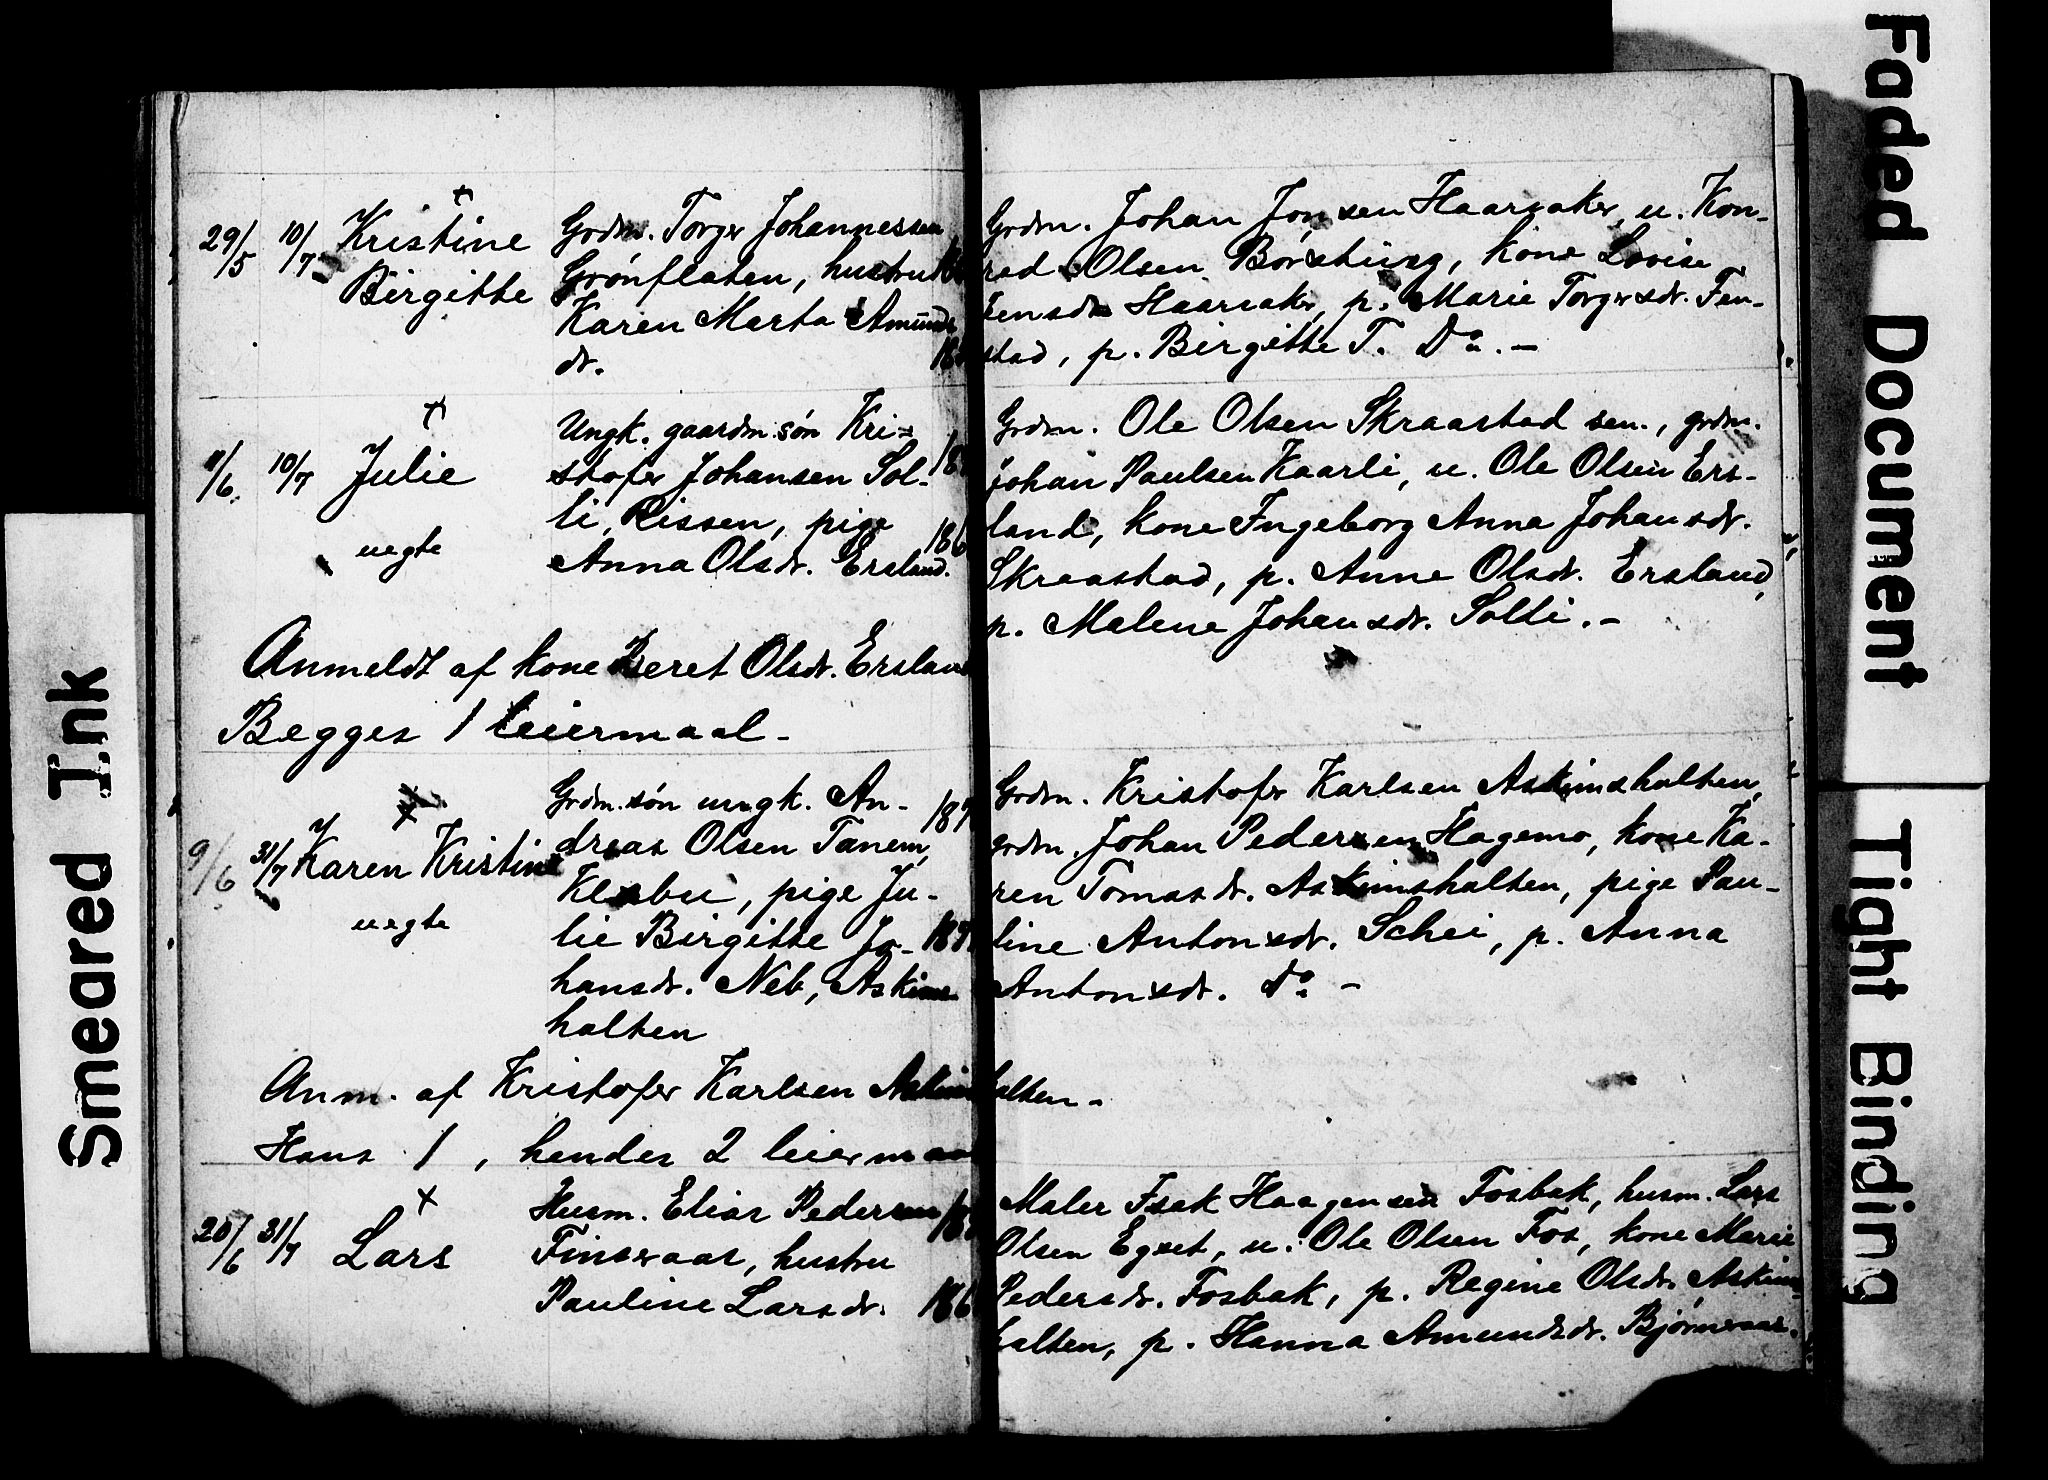 29/5 10/7 Kristine Grdm. Torger Johannessen
Birgitte Grönflaten, hustru
Karen Marta Amunds
dr.
Grdm. Johan Jonsen Haarsaker, u. Kon-
rad Olsen Börstting, kone Lovise
Jensdr Haarsaker, p. Marie Torgersdr. Fen-
stad, p. Birgitte T. Do. -
11/6. 10/7 Julie Ungk. gaardm. søn Kri-
stofer Johansen Sol-
li, Rissen, pige
uegte Anna Olsdr. Ersland.
Grdm. Ole Olsen Skraastad sen., grdm.
Johan Paulsen Kaarli, u. Ole Olsen Ers-
land, kone Ingeborg Anna Johansdr.
Skraastad, p. Anne Olsdr. Ersland,
p. Malene Johansdr. Solli. -
Anmeldt af kone Beret Olsdr. Ersland
Begges 1 leiermaal -
9/6 31/7 Karen Kristine Grdm. søn ungk. An-
dreas Olsen Tanem,
Klæbu, pige Ju-
uegte lie Birgitte Jo-
hansdr. Neb, Askims-
halten
Grdm. Kristofer Karlsen Askimshalten,
grdm. Johan Pedersen Hagemo, kone Ka-
ren Tomasdr. Askimshalten, pige Pau-
line Antonsdr. Schei, p. Anna
Antonsdr. Do. -
Anm. af Kristofer Karlsen Askimshalten -
Hans 1, hendes 2 leiermaal
20/6 31/7 Lars Husm. Elias Pedersen
Finseraas, hustru
Pauline Larsdr.
Maler Isak Haagensen Fosbak, husm. Lars
Olsen Egset, u. Ole Olsen Fos, kone Marie
Pedersdr. Fosbak, p. Regine Olsdr. Askims-
halten, p. Hanna Amundsdr. Bjørneraas.
Smeared Ink
Faded Document
Tight Binding